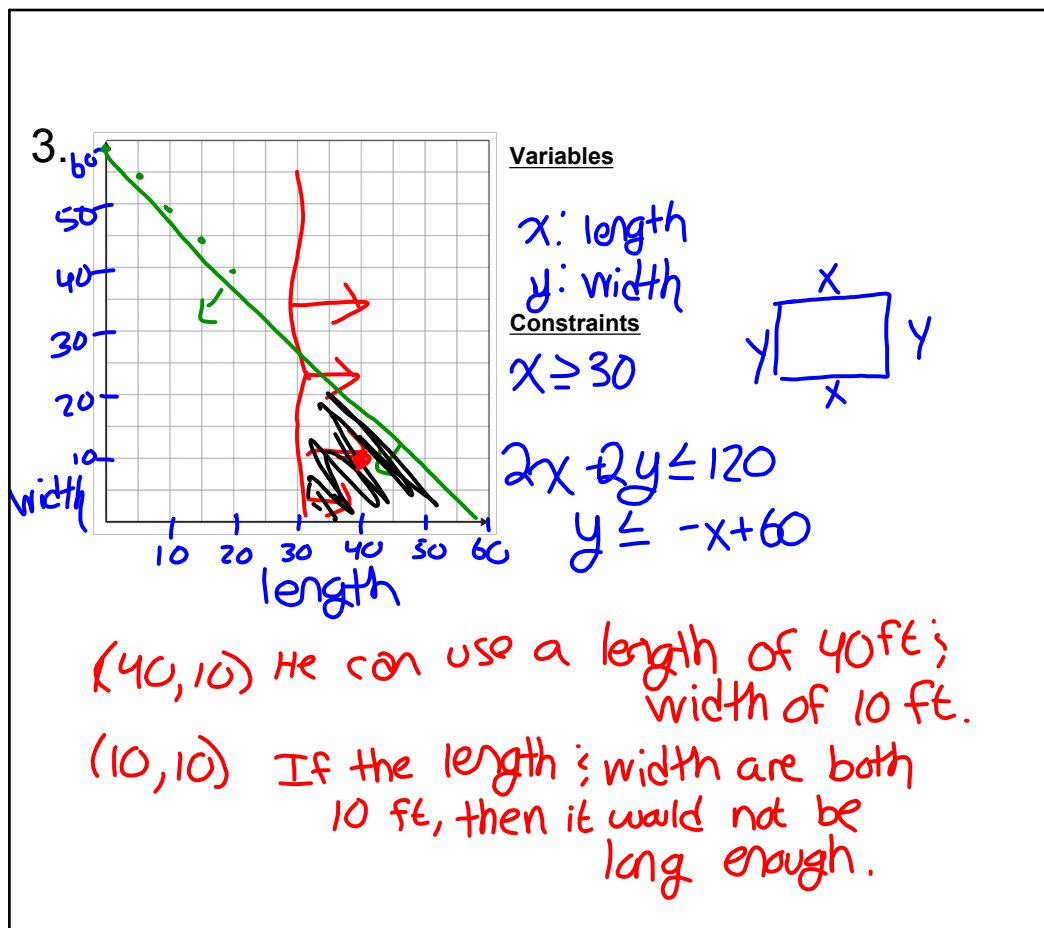 3.
60
50
40
30
20
10
width
10 20 30 40 50 60
length
Variables
x: length
y: width
Constraints
x ≥ 30
2x +2y ≤ 120
y ≤ -x+60
x
y
y
x
(40,10) He can use a length of 40ft &
width of 10 ft.
(10,10) If the length & width are both
10 ft, then it would not be
long enough.